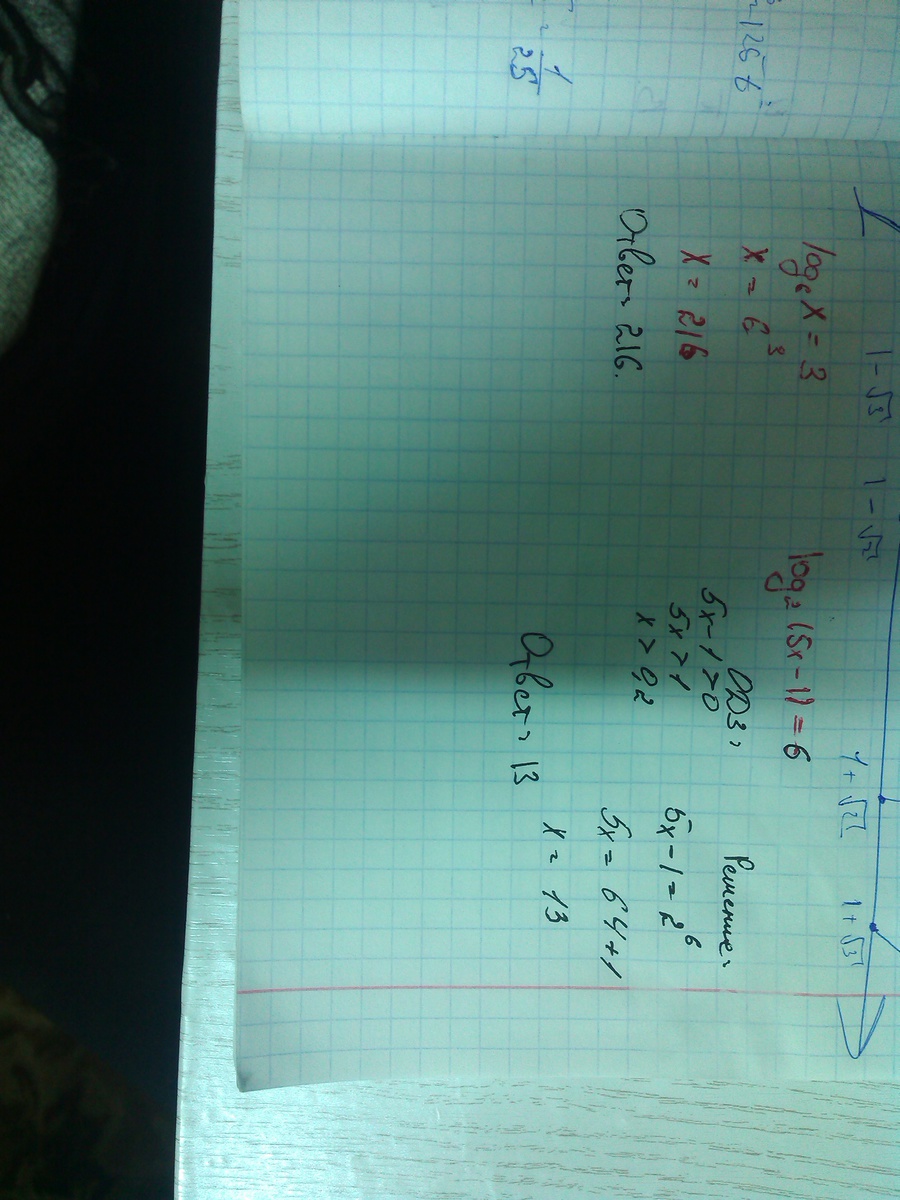 = 125 t
= 1/25
1 - √3 1 - √2 1 + √2 1 + √3
log₆ x = 3
x = 6³
x = 216
Ответ: 216.
log₂ (5x - 1) = 6
ОДЗ:
5x - 1 > 0
5x > 1
x > 0,2
Решение:
5x - 1 = 2⁶
5x = 64 + 1
x = 13
Ответ: 13